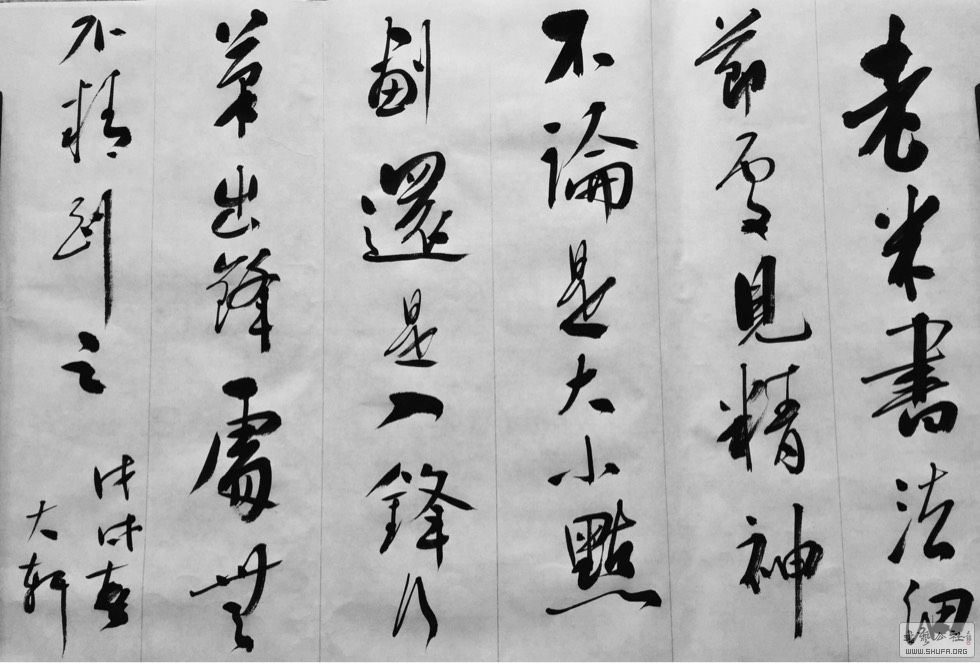 老米書法細
節處見精神
不論是大小點
劃還是入鋒行
筆出鋒處無
不精到之
戊戌春
大軒
WWW.SHUFA.ORG